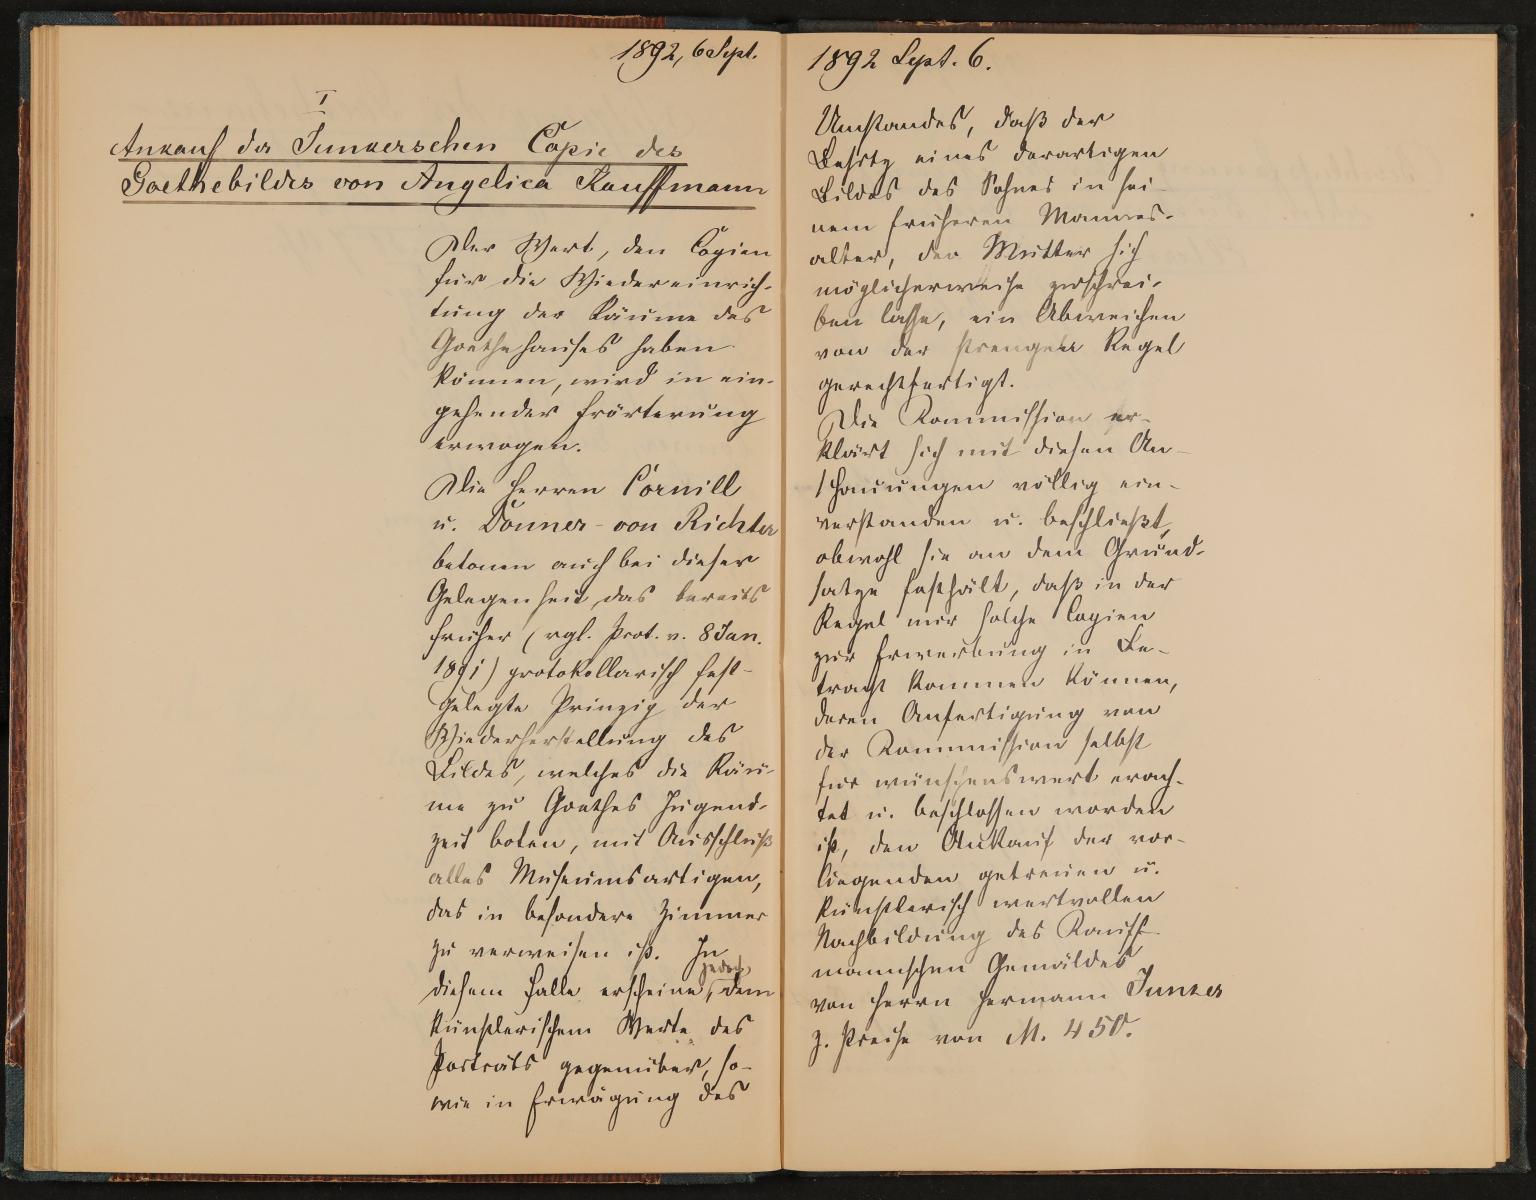 1892, 6 Sept.
I
Ankauf der Junkerschen Copie des
Goethebildes von Angelica Kauffmann
Der Wert, den Copien
für die Wiedereinrich-
tung der Räume des
Goethehauses haben
können, wird in ein-
gehender Erörterung
erwogen.
Die Herren Cornill
u. Donner-von Richter
betonen auch bei dieser
Gelegenheit das bereits
früher (vgl. Prot. v. 8 Jan.
1891) protokollarisch fest-
gelegte Prinzip der
Wiederherstellung des
Bildes, welches die Räu-
me zu Goethes Jugend-
zeit boten, mit Ausschluß
alles Museumsartigen,
das in besondere Zimmer
zu verweisen ist. In
diesem Falle erscheine, jedoch, dem
künstlerischem Werte des
Porträts gegenüber, so-
wie in Erwägung des
1892 Sept. 6.
Umstandes, daß der
Besitz eines derartigen
Bildes des Sohnes in sei-
nem früheren Mannes-
alter, der Mutter sich
möglicherweise zuschrei-
ben lasse, ein Abweichen
von der strengen Regel
gerechtfertigt.
Die Kommission er-
klärt sich mit diesen An-
schauungen völlig ein-
verstanden u. beschließt,
obwohl sie an dem Grund-
satze festhält, daß in der
Regel nur solche Copien
zur Erwerbung in Be-
tracht kommen können,
deren Anfertigung von
der Kommission selbst
für wünschenswert erach-
tet u. beschlossen worden
ist, den Ankauf der vor-
liegenden getreuen u.
künstlerisch wertvollen
Nachbildung des Kauff-
mannschen Gemäldes
von Herrn Hermann Junker
z. Preise von M. 450.